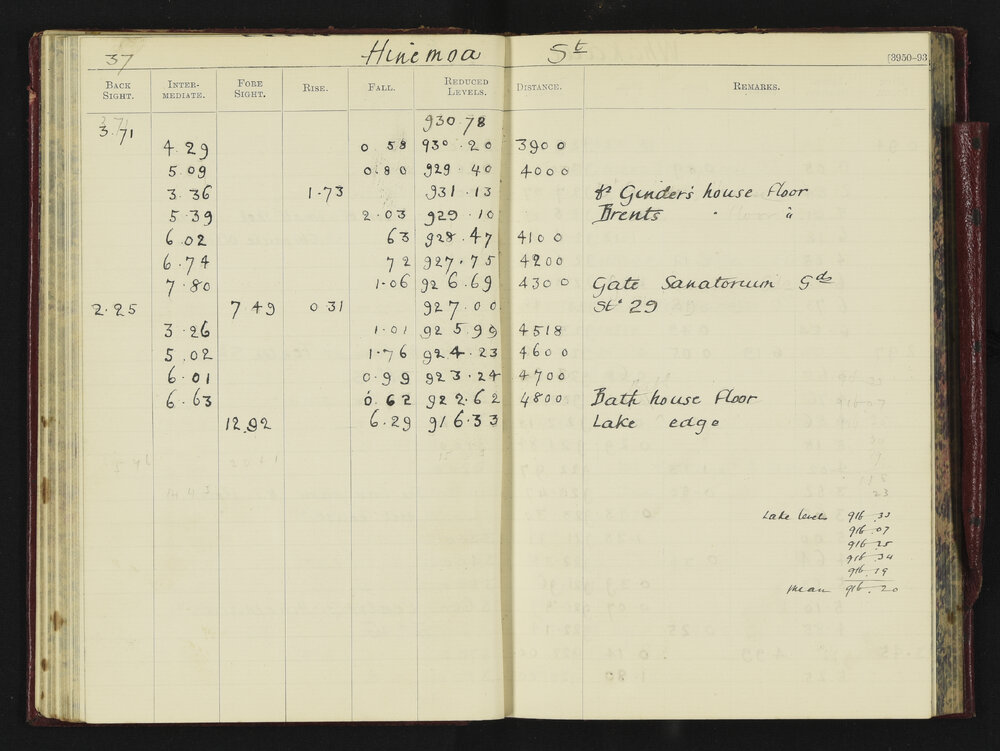 37 Hinemoa St [3950-93
BACK SIGHT. INTER-MEDIATE. FORE SIGHT. RISE. FALL. REDUCED LEVELS. DISTANCE. REMARKS.
3.71 930.78
4.29 0.58 930.20 3900
5.09 0.80 929.40 4000
3.36 1.73 931.13 Ginders house floor
5.39 2.03 929.10 Brents " "
6.02 63 928.47 4100
6.74 72 927.75 4200
7.80 1.06 926.69 4300 Gate Sanatorium Gds
2.25 7.49 0.31 927.00 St. 29
3.26 1.01 925.99 4518
5.02 1.76 924.23 4600
6.01 0.99 923.24 4700
6.63 0.62 922.62 4800 Bath house floor
12.92 6.29 916.33 Lake edge
Lake levels 916.33
916.07
916.25
916.34
916.19
Mean 916.20